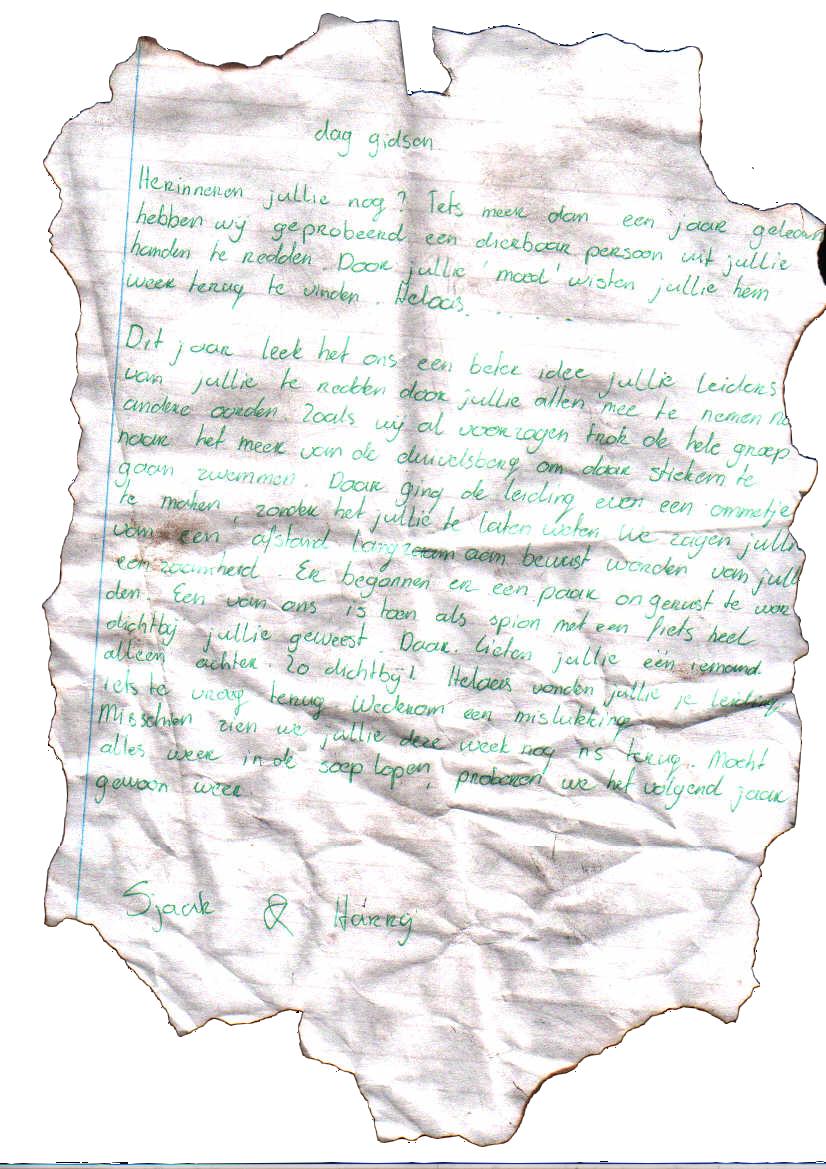 dag gidsen
Herinneren jullie nog? Iets meer dan een jaar geleden
hebben wij geprobeerd een dierbaar persoon uit jullie
handen te redden. Door jullie 'moed' wisten jullie hem
weer terug te vinden. Helaas.......
Dit jaar leek het ons een beter idee jullie leiders
van jullie te redden door jullie allen mee te nemen na
andere oorden. Zoals wij al voorzagen trok de hele groep
naar het meer van de duivelsberg om daar stiekem te
gaan zwemmen. Daar ging de leiding even een ommetje
te maken, zonder het jullie te laten weten. We zagen jullie
van een afstand langzaam aan bewust worden van jull
eenzaamheid. Er begonnen er een paar ongerust te wor
den. Een van ons is toen als spion met een fiets heel
dichtbij jullie geweest. Daar lieten jullie één iemand
alleen achter. Zo dichtbij! Helaas vonden jullie je leiding
iets te vroeg terug. Wederom een mislukking.
Misschien zien we jullie deze week nog ns terug. Mocht
alles weer in de soep lopen, proberen we het volgend jaar
gewoon weer.
Sjaak & Harry